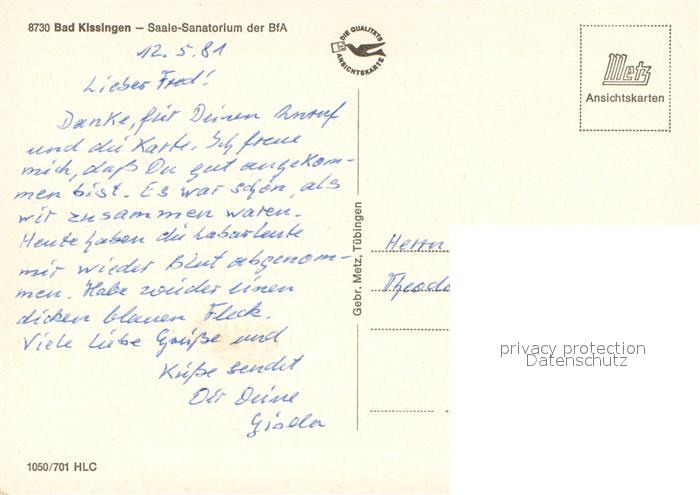 8730 Bad Kissingen – Saale-Sanatorium der BfA
DIE QUALITÄTS
ANSICHTSKARTE
Metz
Ansichtskarten
12.5.81
Lieber Fred!
Danke, für Deinen Anruf
und die Karte. Ich freue
mich, daß Du gut angekom-
men bist. Es war schön, als
wir zusammen waren.
Heute haben die Laborleute
mir wieder Blut abgenom-
men. Habe wieder einen
dicken blauen Fleck.
Viele liebe Grüße und
Küße sendet
Dir Deine
Gisela
Gebr. Metz, Tübingen
Herrn
Theodo
privacy protection
Datenschutz
1050/701 HLC